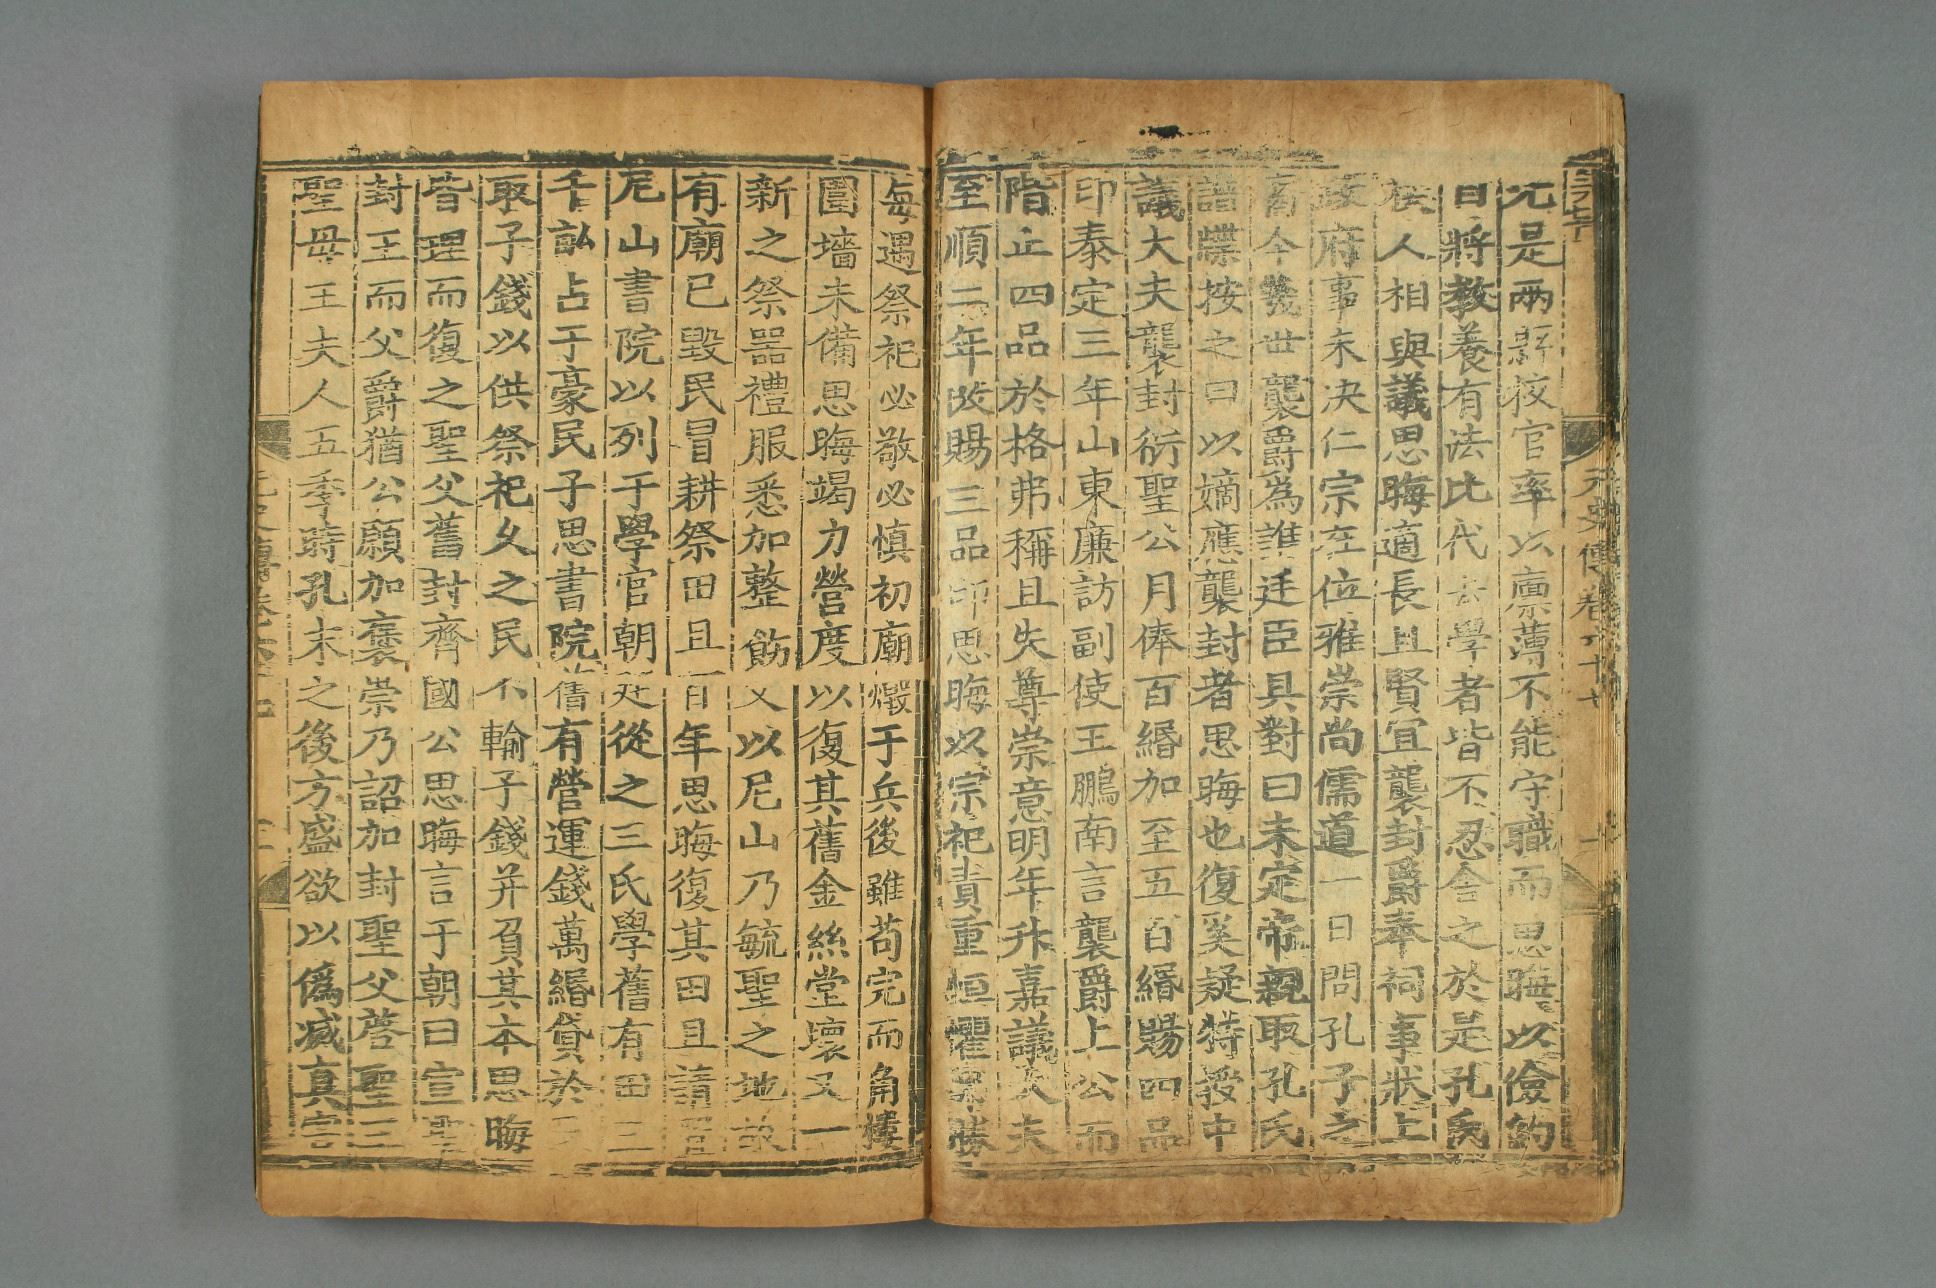 元史傳卷六十七
尤是兩縣校官率以廩薄不能守職而思晦以儉約
自將教養有法比代去學者皆不忍舍之於是孔氏
族人相與議思晦適長且賢宜襲封爵奉祠事狀上
政府事未决仁宗在位雅崇尚儒道一日問孔子之
裔今幾世襲爵爲誰廷臣具對曰未定帝親取孔氏
譜牒按之曰以嫡應襲封者思晦也復奚疑特授中
議大夫襲封衍聖公月俸百緡加至五百緡賜四品
印泰定三年山東廉訪副使王鵬南言襲爵上公而
階止四品於格弗稱且失尊崇意明年升嘉議大夫
至順二年改賜三品印思晦以宗祀責重恒懼弗勝
每遇祭祀必敬必慎初廟燬于兵後雖苟完而角樓
圍墻未備思晦竭力營度以復其舊金絲堂壞又一
新之祭器禮服悉加整飭又以尼山乃毓聖之地故
有廟已毀民冒耕祭田且百年思晦復其田且請置
尼山書院以列于學官朝廷從之三氏學舊有田三
千畝占于豪民子思書院舊有營運錢萬緡貸於
取子錢以供祭祀久之民不輸子錢并負其本思晦
皆理而復之聖父舊封齊國公思晦言于朝曰宣聖
封王而父爵猶公願加褒崇乃詔加封聖父啓聖王
聖母王夫人五季時孔末之後方盛欲以僞滅真害